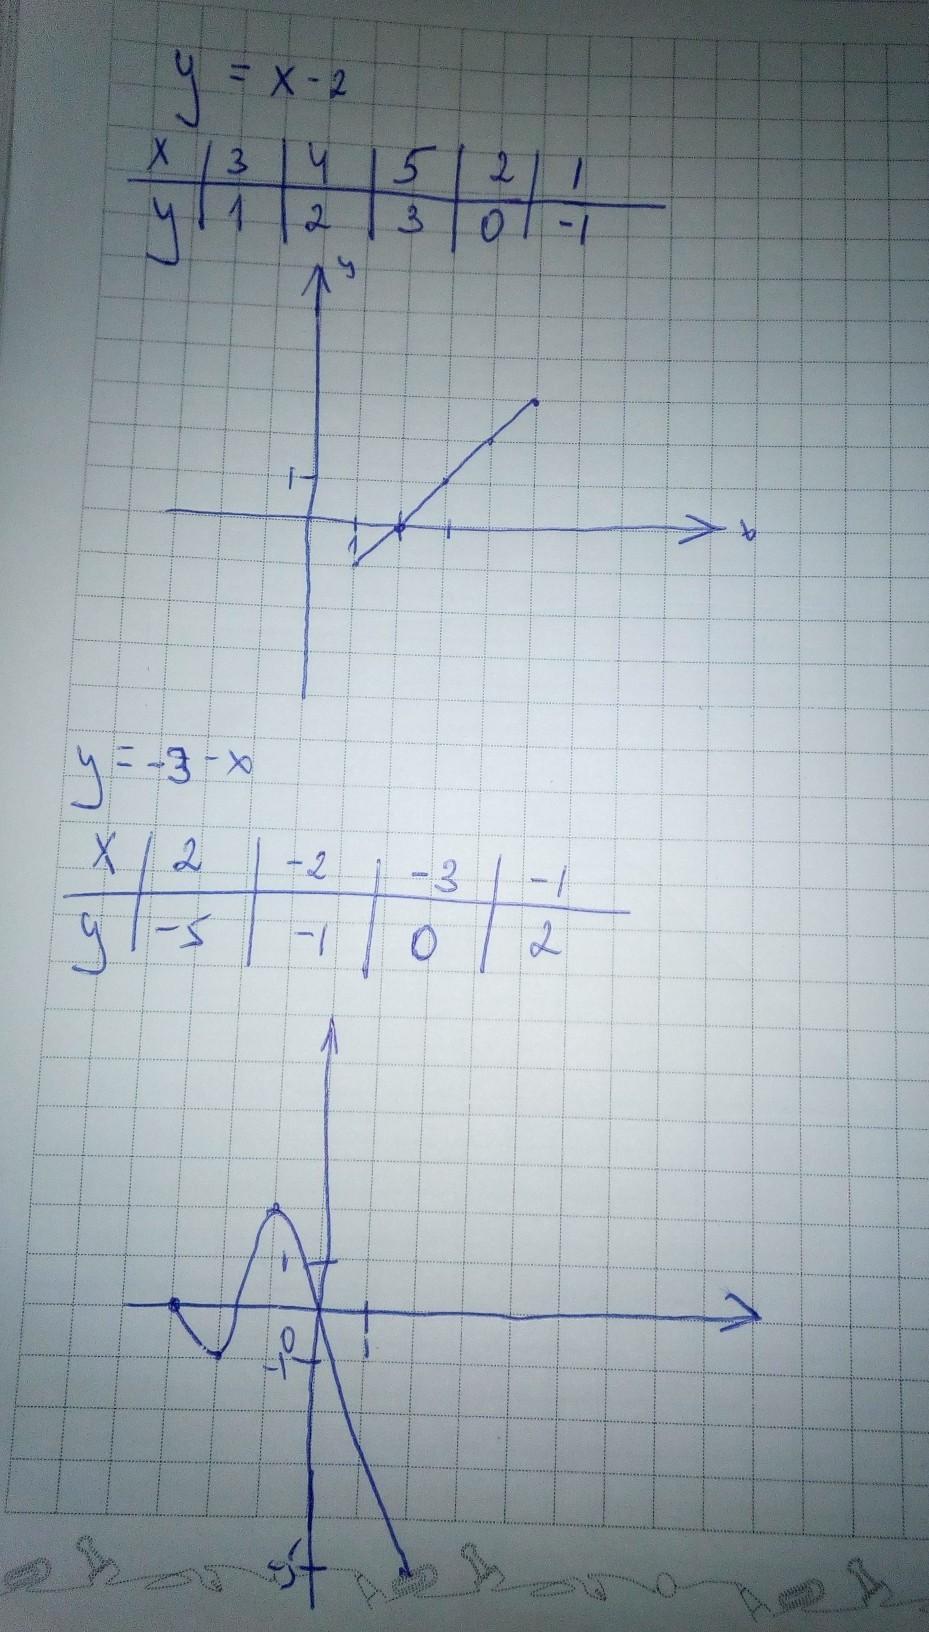 y = x - 2
x | 3 | 4 | 5 | 2 | 1
y | 1 | 2 | 3 | 0 | -1
y
1
1
x
y = -3 - x
x | 2 | -2 | -3 | -1
y | -5 | -1 | 0 | 2
1
0
1
-1
-5